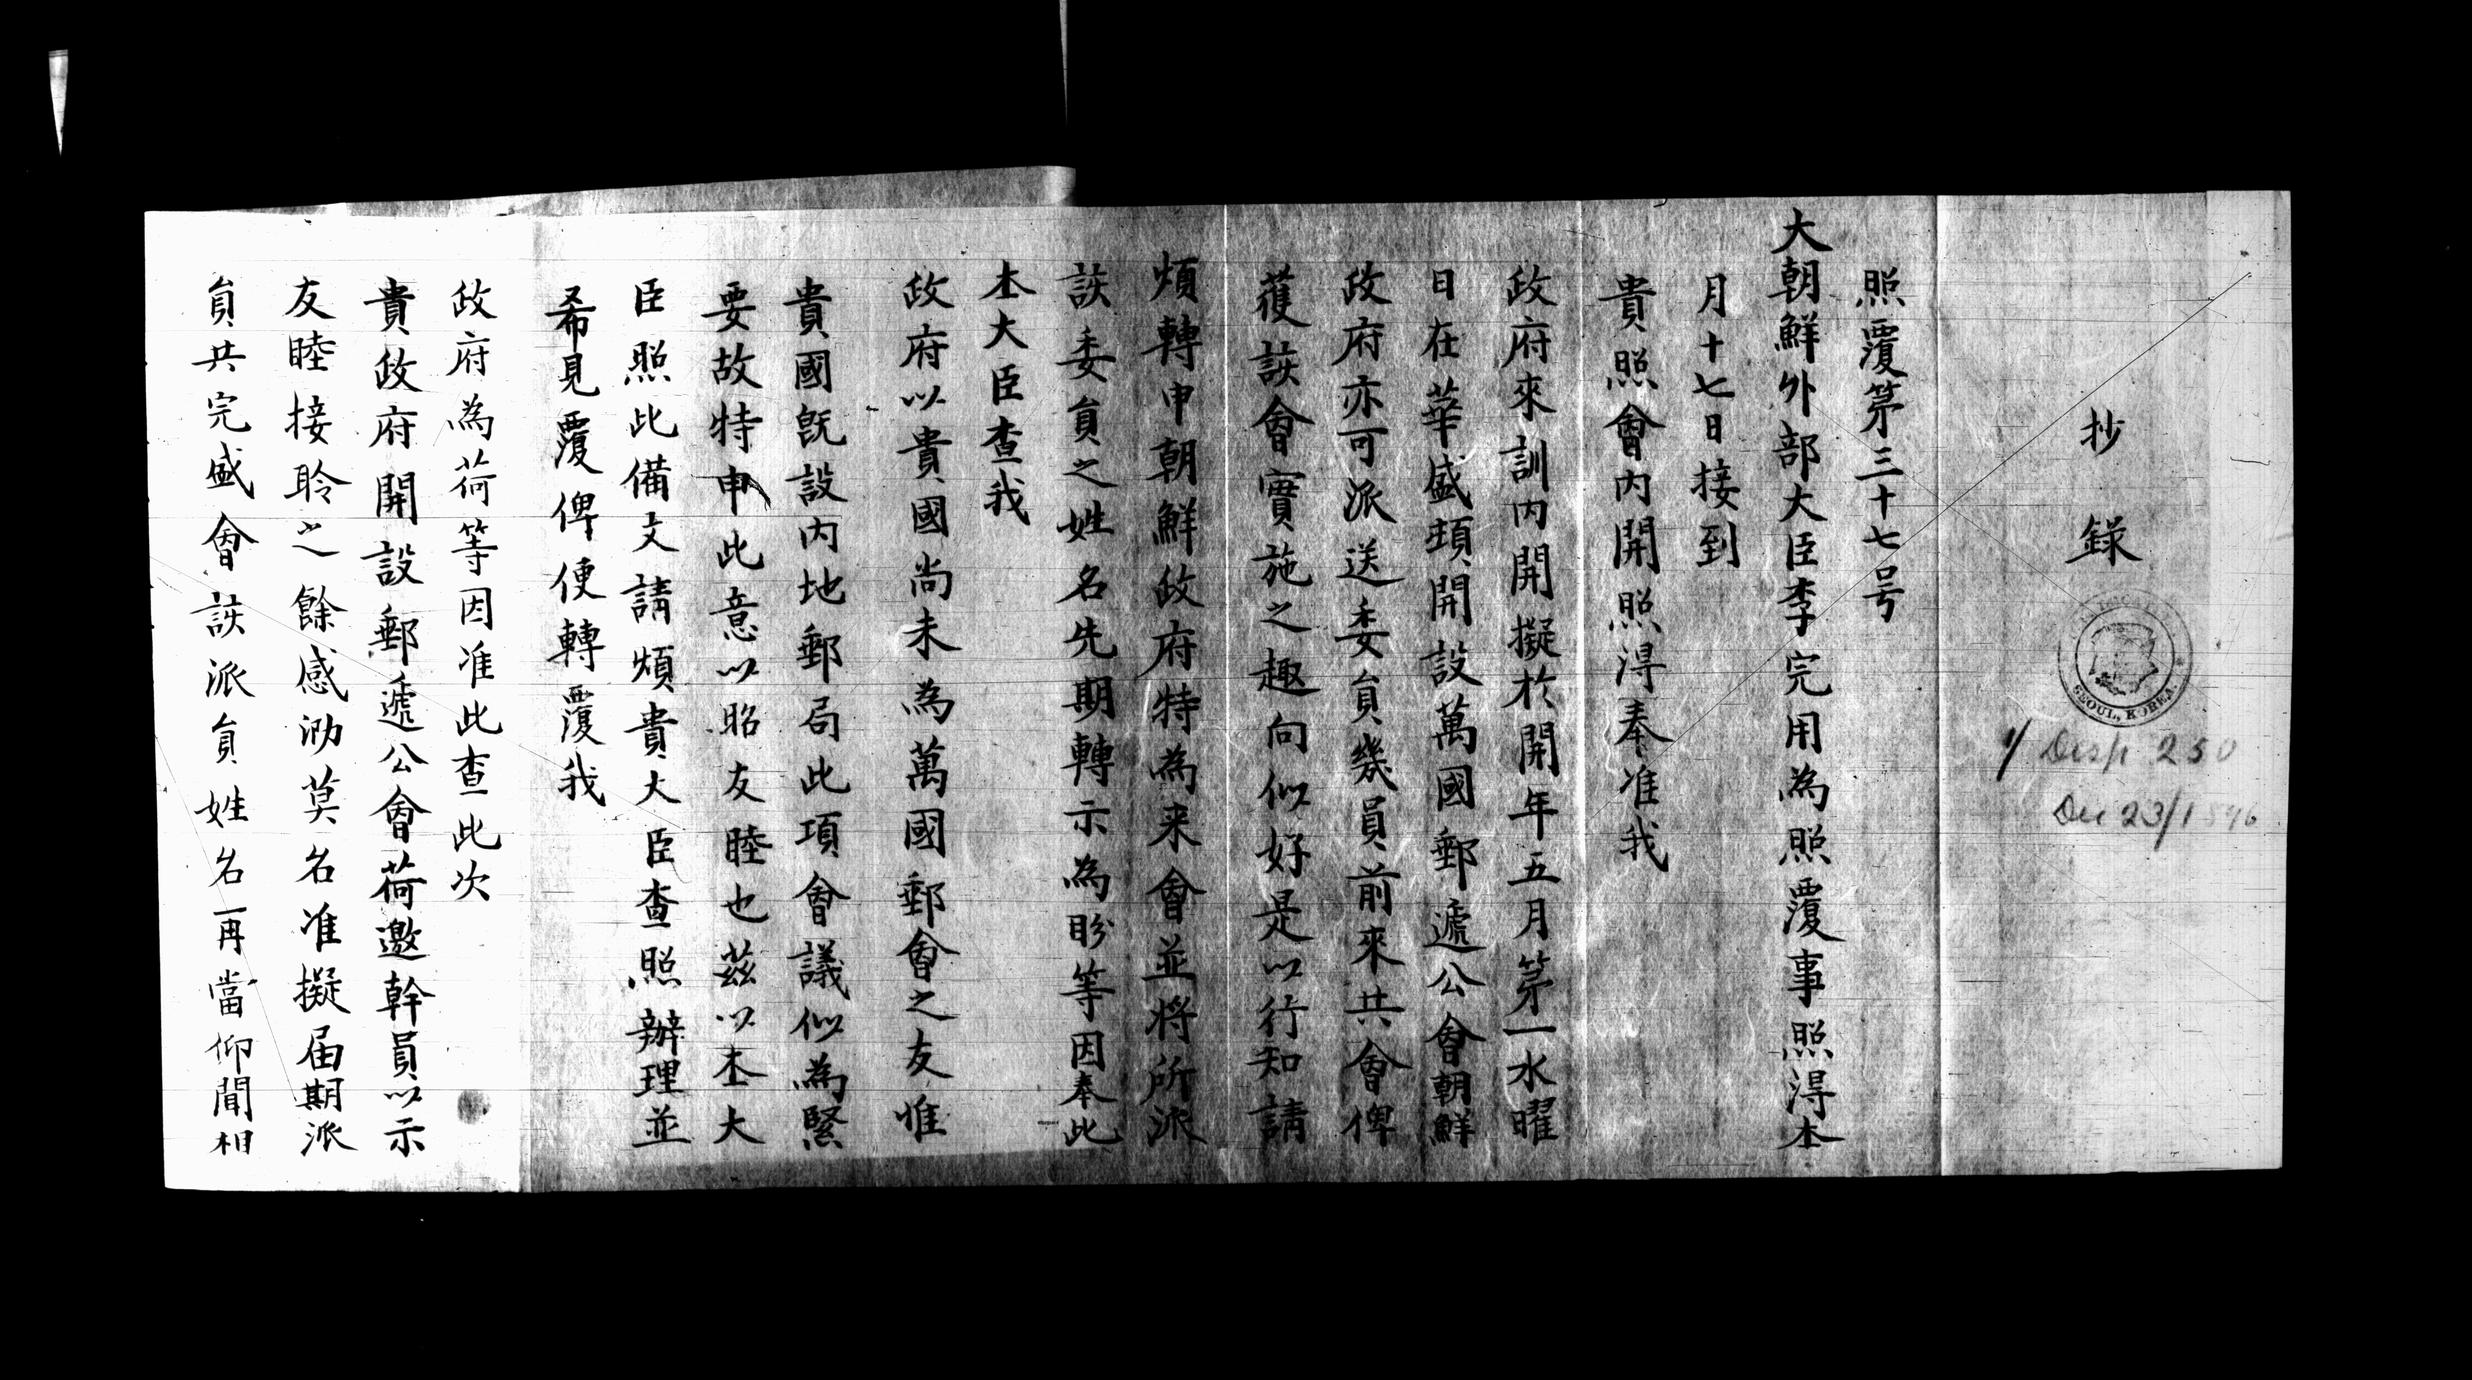 抄録
SEOUL, KOREA.
1/ Desp 250
Dec 23/1896
照覆第三十七号
大朝鮮外部大臣李完用為照覆事照得本
月十七日接到
貴照會內開照得奉准我
政府來訓內開擬於開年五月第一水曜
日在華盛頓開設萬國郵遞公會朝鮮
政府亦可派送委員幾員前來共會俾
獲該會實施之趣向似好是以行知請
煩轉申朝鮮政府特為來會並將所派
該委員之姓名先期轉示為盼等因奉此
本大臣查我
政府以貴國尚未為萬國郵會之友惟
貴國旣設內地郵局此項會議似為緊
要故特申此意以昭友睦也茲以本大
臣照此備文請煩貴大臣查照辦理並
希見覆俾便轉覆我
政府為荷等因准此查此次
貴政府開設郵遞公會荷邀幹員以示
友睦接聆之餘感泐莫名准擬届期派
員共完盛會該派員姓名再當仰聞相